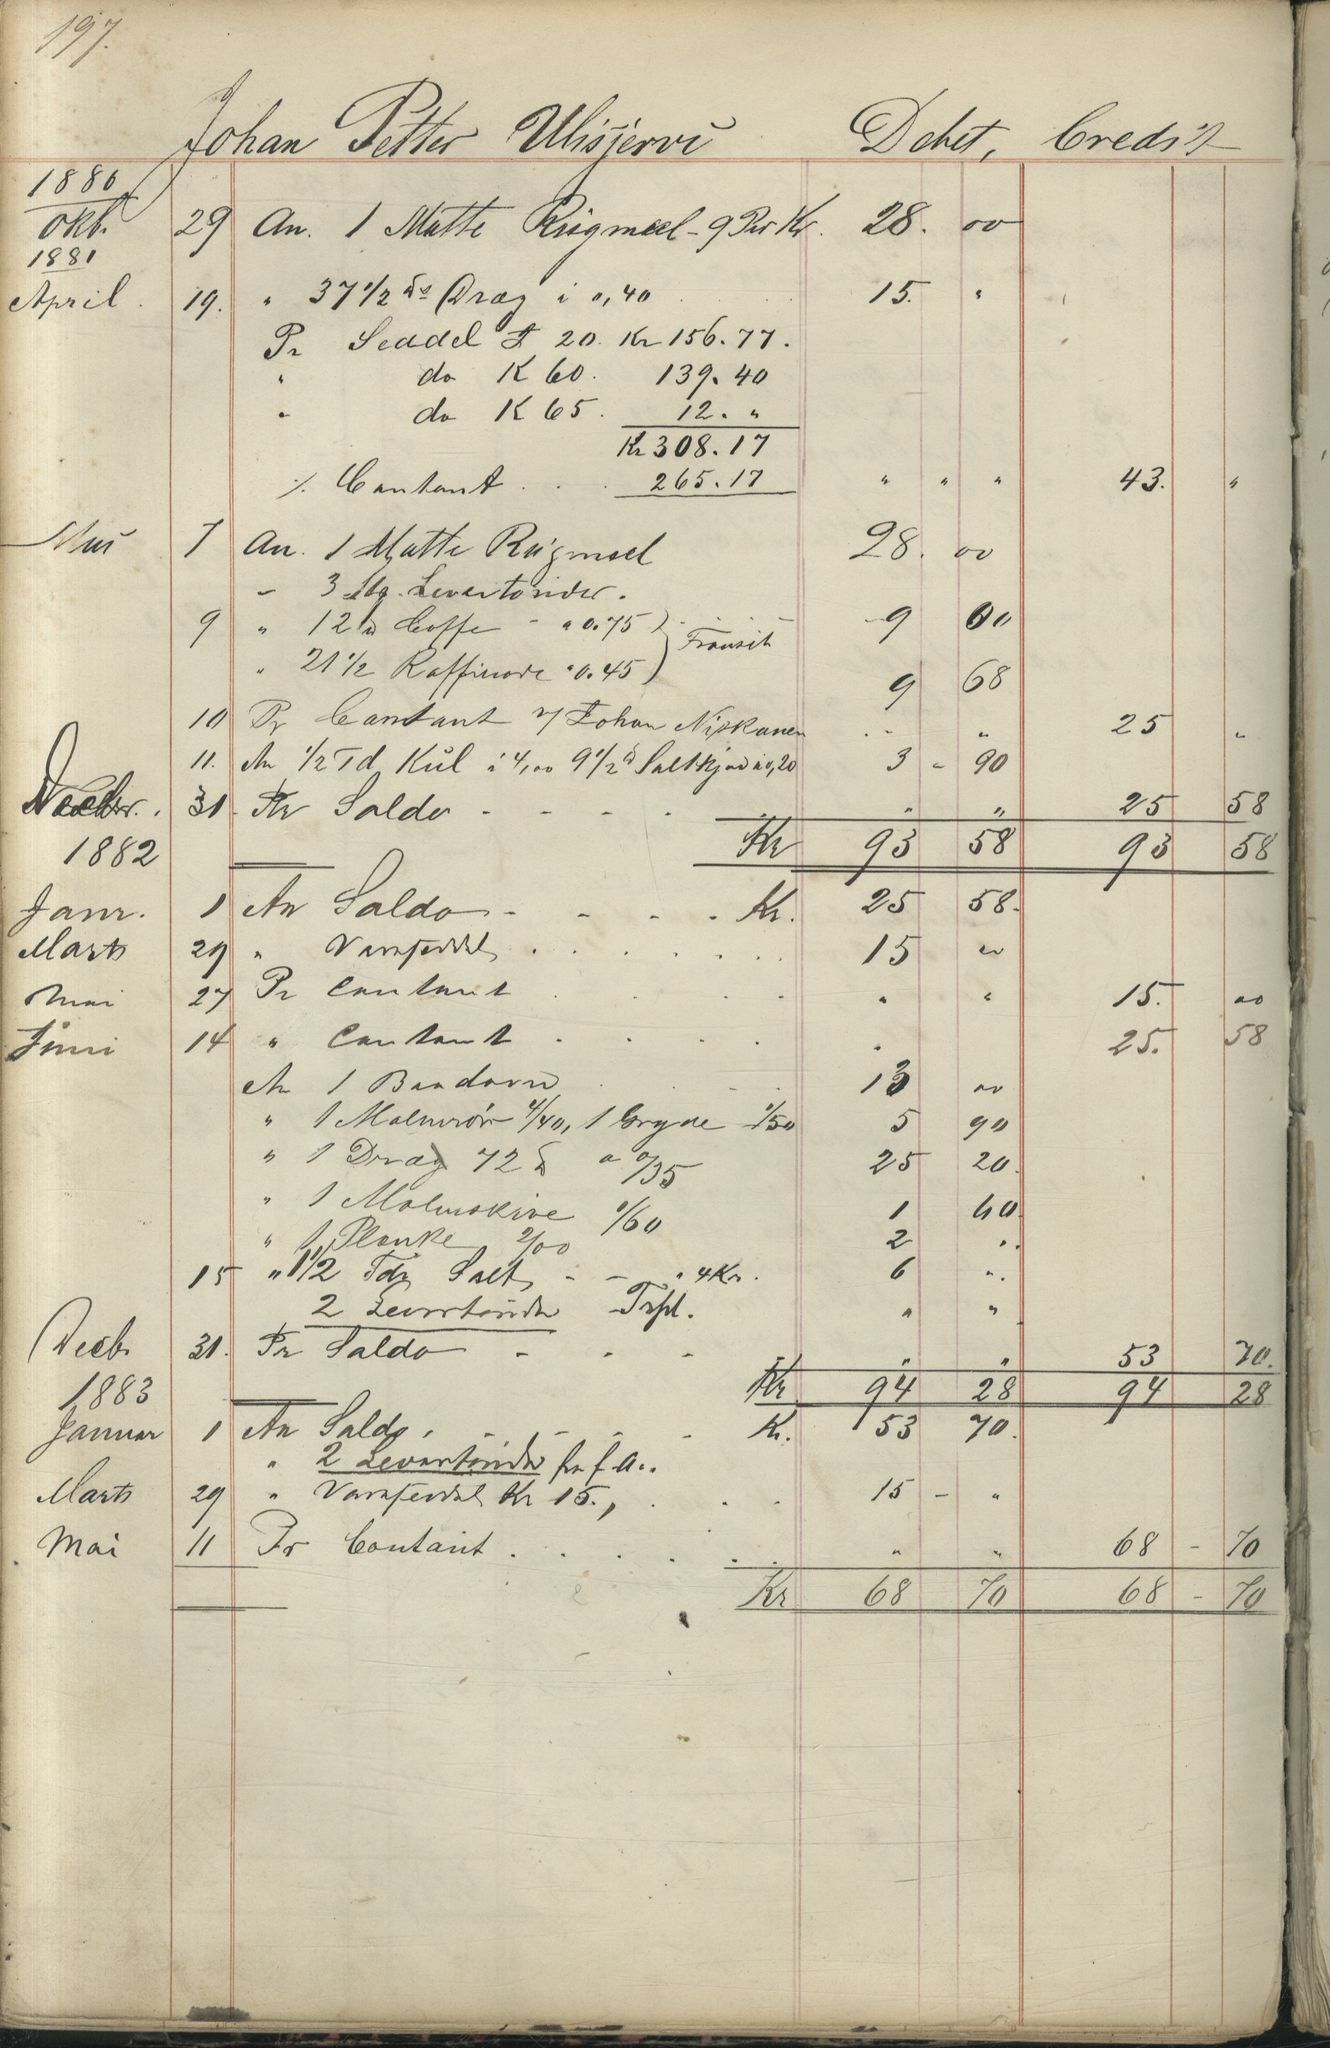 197.
Johan Petter Ulisjervi Debet, Credit
1880
Okb. 29 An. 1 Matte Rügmeel - 9 Kr. 28. 00
1881
April. 19. " 37 1/2 Drag i 0,40 15. "
Pr Seddel F 20. Kr 156.77.
" do K 60. 139.40
" do K 65. 12. "
Kr 308.17
% Contant . . . 265.17 " " " 43. "
Mai 7 An. 1 Matte Rügmeel 28. 00
" 3 Levertønder.
9 " 12 Coffe - " 0.75 ) Transit 9 00
" 21 1/2 Raffinade " 0.45 ) 9 68
10 Pr Contant v/ Johan Niskanen " " 25 "
11. An 1/2 Td Kul i 4,00 9 1/2 Saltkjød a 0,20 3 - 90
Decbr. 31. Pr Saldo - - - - " " 25 58
1882 Kr 93 58 93 58
Janr. 1 An Saldo - - - - Kr. 25 58.
Marts 29 " . . . . . . 15 00
Mai 27 Pr Contant . . . . " " 15. 00
Juni 14 " Contant . . . . " 25. 58
An 1 Baadovn . . . 13 00
" 1 Malmrør 4/40, 1 Gryde 1/50 5 90
" 1 Drag 72 a 0/35 25 20.
" 1 Malmskive 1/60 1 60
" 1 Planke 2/00 2 "
15 " 1 1/2 Tdr Salt - - " 4 Kr. 6 "
2 Levertønder Trpt. " "
Decb 31. Pr Saldo - - - - " " 53 70.
1883 Kr 94 28 94 28
Januar 1 An Saldo. - - - - Kr. 53 70.
" 2 Levertønder fra f. A..
Marts 29 " Kr 15., . . . 15 - "
Mai 11 Pr Contant . . . . . . " " 68 - 70
Kr 68 70 68 - 70